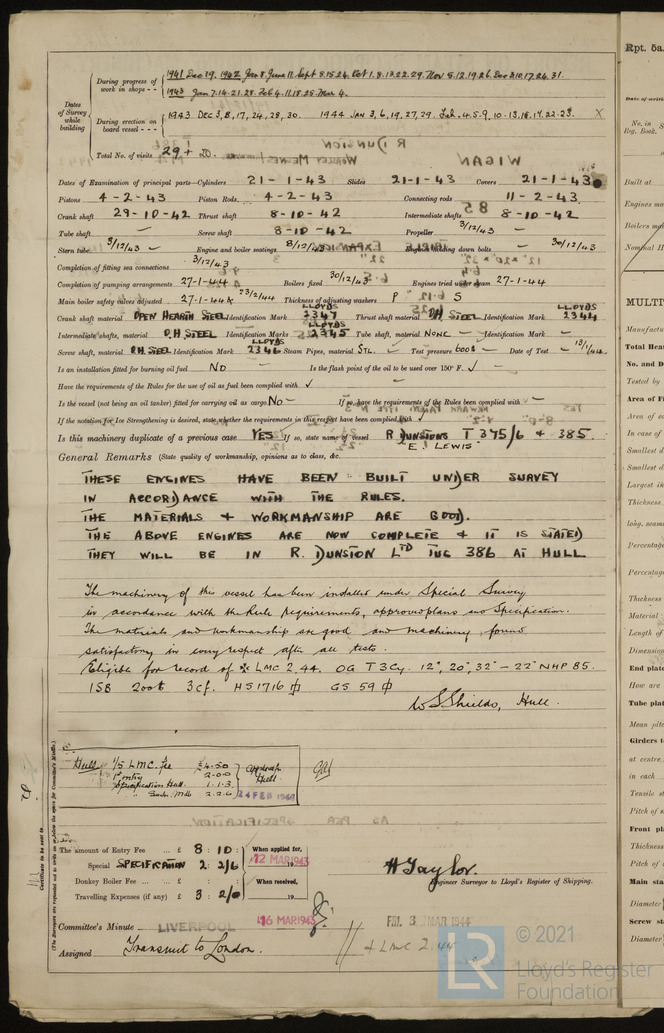 During progress of work in shops - - 1941 Dec 19. 1942 Jan 8. June 11. Sept 8.15.24. Oct 1.8.13.22.29. Nov 5.12.19.26. Dec 3.10.17.24.31.
1943 Jan 7.14.21.28. Feb 4.11.18.25. Mar 4.
Dates of Survey while building
During erection on board vessel - - - 1943 Dec 3, 8, 17, 24, 28, 30. 1944 Jan 3, 6, 19, 27, 29. Feb. 4. 5. 9. 10. 13. 18. 17. 22. 23. X
Total No. of visits 29 + 20.
Dates of Examination of principal parts—Cylinders 21-1-43 Slides 21-1-43 Covers 21-1-43
Pistons 4-2-43 Piston Rods 4-2-43 Connecting rods 11-2-43
Crank shaft 29-10-42 Thrust shaft 8-10-42 Intermediate shafts 8-10-42
Tube shaft — Screw shaft 8-10-42 Propeller 3/12/43
Stern tube 3/12/43 Engine and boiler seatings 8/12/43 Engines holding down bolts 30/12/43
Completion of fitting sea connections 3/12/43
Completion of pumping arrangements 27-1-44 Boilers fixed 30/12/43 Engines tried under steam 27-1-44
Main boiler safety valves adjusted 27-1-44 23/2/44 Thickness of adjusting washers P S
Crank shaft material OPEN HEARTH STEEL Identification Mark LLOYDS 2347 Thrust shaft material O.H STEEL Identification Mark LLOYDS 2344
Intermediate shafts, material O.H STEEL Identification Marks LLOYDS 2345 Tube shaft, material NONE Identification Mark —
Screw shaft, material O.H. STEEL Identification Mark LLOYDS 2346 Steam Pipes, material STL. Test pressure 600 Date of Test 13/1/44
Is an installation fitted for burning oil fuel NO Is the flash point of the oil to be used over 150°F. ✓
Have the requirements of the Rules for the use of oil as fuel been complied with ✓
Is the vessel (not being an oil tanker) fitted for carrying oil as cargo No — If so, have the requirements of the Rules been complied with —
If the notation for Ice Strengthening is desired, state whether the requirements in this respect have been complied with ✓
Is this machinery duplicate of a previous case YES If so, state name of vessel R DUNSTONS T 375/6 + 385.
E. J LEWIS
General Remarks (State quality of workmanship, opinions as to class, &c.
THESE ENGINES HAVE BEEN BUILT UNDER SURVEY
IN ACCORDANCE WITH THE RULES.
THE MATERIALS + WORKMANSHIP ARE GOOD.
THE ABOVE ENGINES ARE NOW COMPLETE + IT IS STATED
THEY WILL BE IN R. DUNSTON LTD TUG 386 AT HULL
The machinery of this vessel has been installed under Special Survey
in accordance with the Rule requirements, approved plans and Specification.
The materials and workmanship are good and machinery found
satisfactory in every respect after all tests.
Eligible for record of LMC 2,44. OG T3Cy. 12", 20", 32" – 22" NHP 85.
1SB 200lb 3cf. HS1716 GS 59
W S Shields, Hull.
Hull 1/5 LMC. Fee £4.50
2-0-0
Specification Hull. 1-1-3
2.2.6
24 FEB 1944
The amount of Entry Fee ... £ 8 : 10 : When applied for,
Special SPECIFICATION 2 : 2/6 12 MAR 1943
Donkey Boiler Fee ... ... £ : : When received,
Travelling Expenses (if any) £ 3 : 2/0 19
H Taylor.
Engineer Surveyor to Lloyd's Register of Shipping.
Committee's Minute LIVERPOOL 16 MAR 1943 FRI. 3 MAR 1944
Assigned Transmit to London. + LMC 2.44
Certificate to be sent to
(The Surveyors are requested not to write on or below the space for Committee's Minute.)
Rpt. 5a.
No. in
Reg. Book.
Built at
Engines ma
Boilers mad
Nominal H
MULTI
Manufactu
Total Heat
No. and D
Tested by
Area of Fi
Area of ea
In case of
Smallest d
Smallest d
Largest in
Thickness
long. seams
Percentage
Percentage
Thickness
Material
Length of
Dimension
End plate
How are
Tube plat
Mean pitc
Girders to
at centre
in each
Tensile st
Pitch of s
Front pla
Thickness
Pitch of
Main stay
Diameter
Screw sta
Diameter
LR
© 2021
Lloyd's Register
Foundation